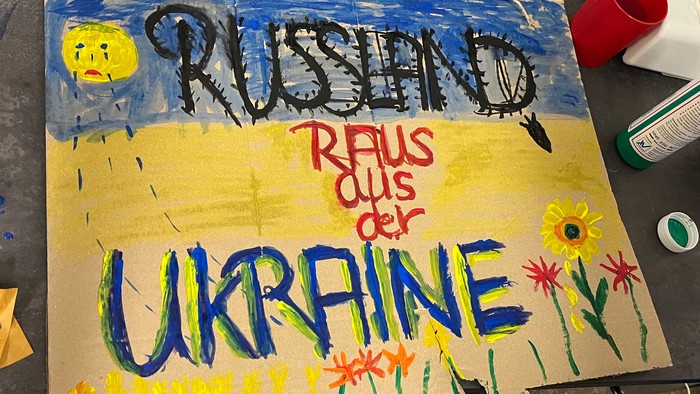 RUSSLAND
RAUS
aus
der
UKRAINE